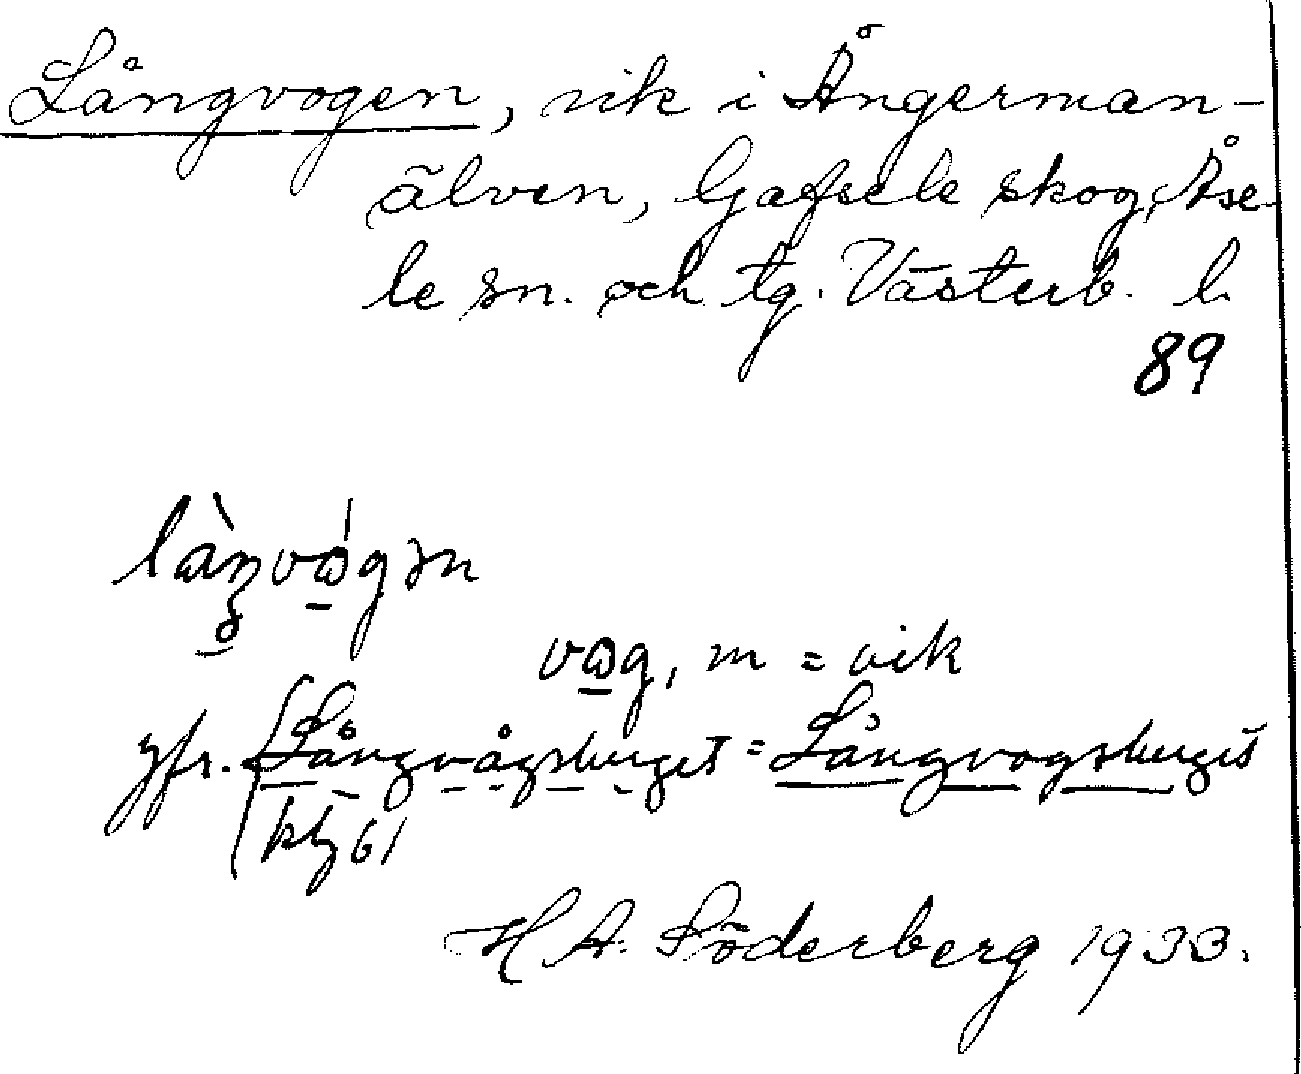 Långvogen, vik i Ångerman-
älven, Gafsele skog, Åse-
le sn. och tg. Västerb. l.
89
vɷg, m = vik
jfr. Långvågsberget = Långvogsberget
61
H A. Söderberg 1933.